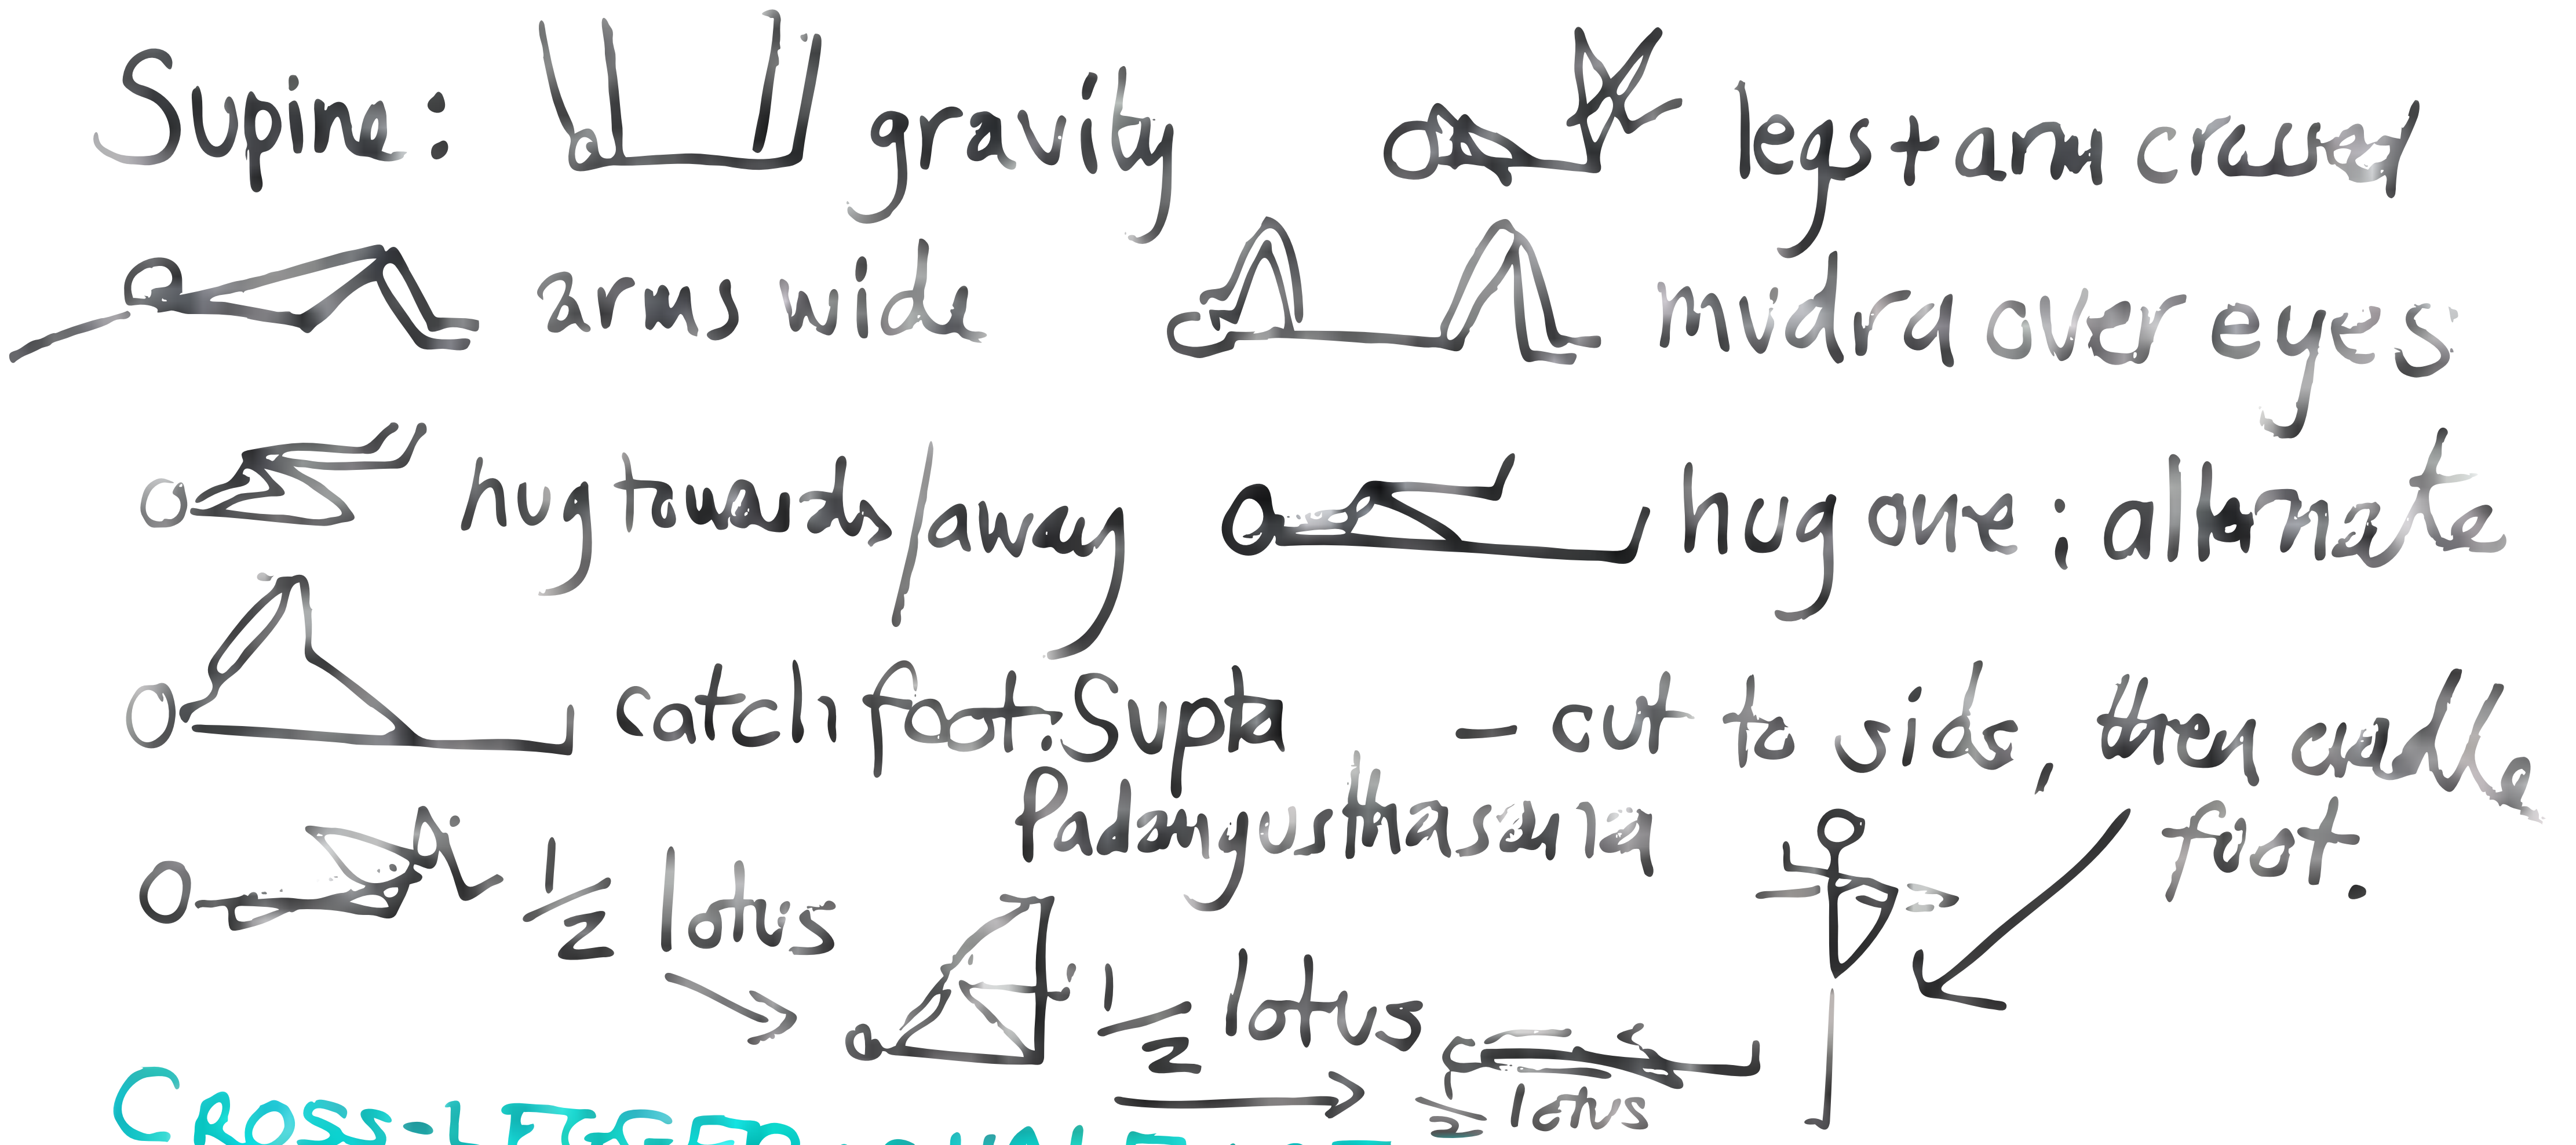 Supine: gravity legs + arm crossed
arms wide mudra over eyes
hug towards/away hug one; alternate
catch foot: Supta - out to side, then cradle
Padangusthasana foot.
1/2 lotus
1/2 lotus
1/2 lotus
CROSS-LEGGED